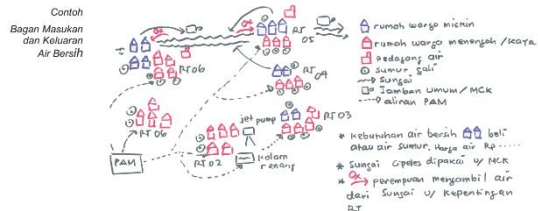 Contoh
Bagan Masukan
dan Keluaran
Air Bersih
RT
05
RT06
RT
04
jet pump
RT03
RT06
RT02
kolam
renang
PAM
rumah warga miskin
rumah warga menengah/kaya
Pedagang air
Sumur gali
Sungai
Jamban umum/MCK
aliran PAM
* Kebutuhan air bersih beli
atau air sumur. Harga air Rp ......
* Sungai dipakai u/ MCK
* perempuan mengambil air
dari Sungai u/ kepentingan
RT